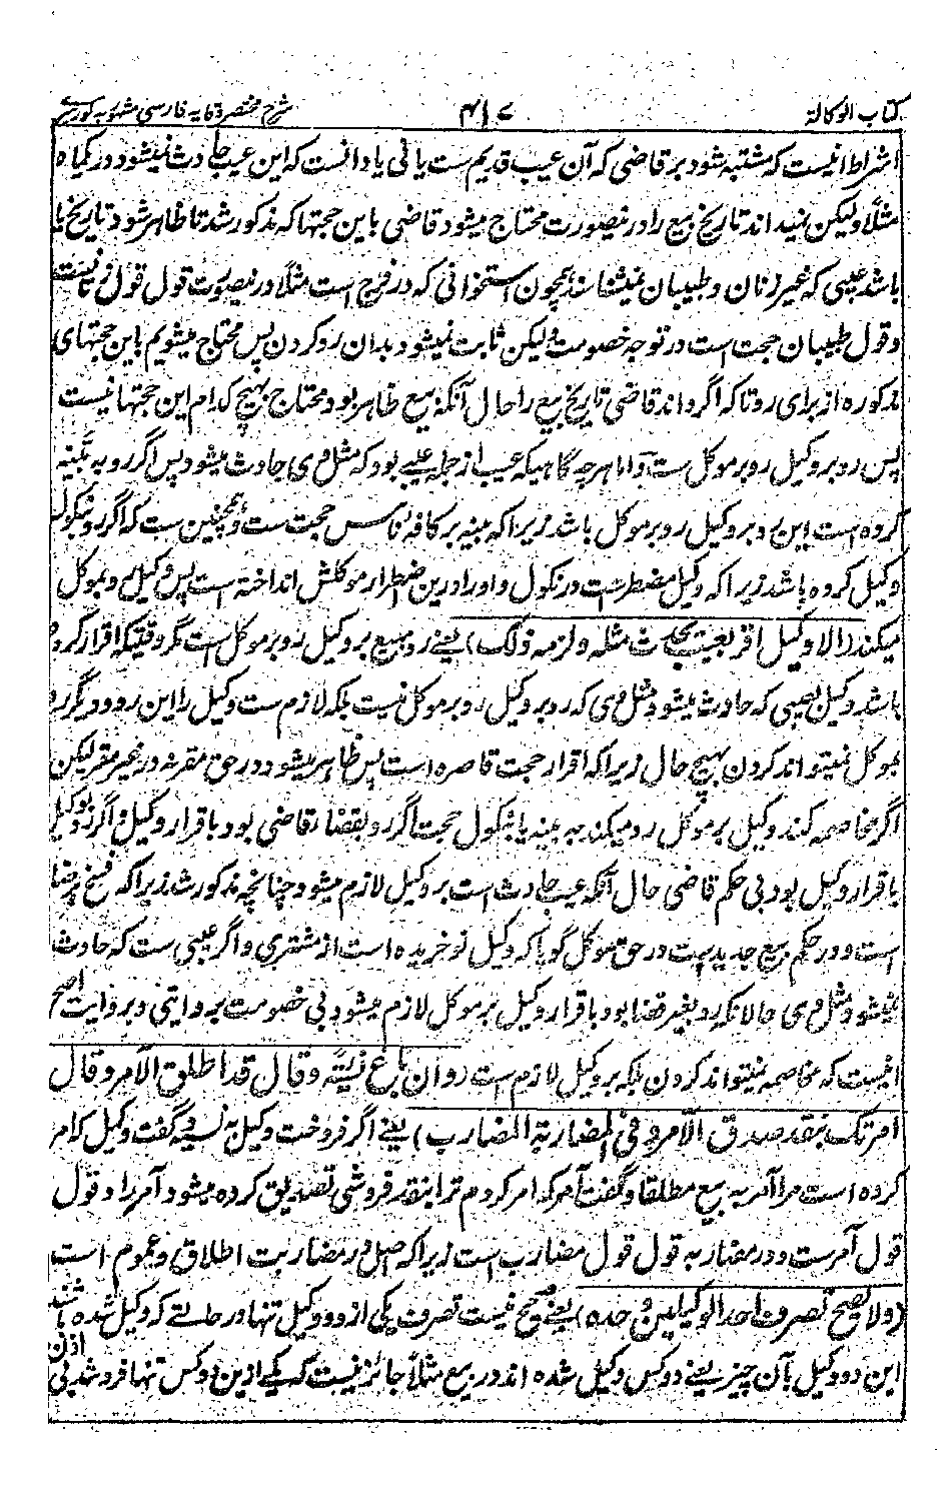 کتاب الوکالة ۴۱۷ شرح مختصر وقایه فارسی مشهور به کورسے
اشراط انیست که مشتبه شود بر قاضی که آن عیب قدیم ست یا نی یا دانست که این عیب حادث نمیشود در یکماه
مثلا و لیکن نمیداند تاریخ بیع را درینصورت محتاج میشود قاضی باین حجتها که مذکور شد تا ظاهر شود تاریخ یا
باشد عیبی که غیر زنان و طبیبان نمیشناسند همچون استخوانی که در فرج است مثلا درینصورت قول قول زنانست
و قول طبیبان حجت است در توجه خصومت و لیکن ثابت نمیشود بدان رد کردن پس محتاج میشویم باین حجتهای
مذکوره از برای رد تا که اگر داند قاضی تاریخ بیع را حال آنکه بیع ظاهر بود محتاج بهیچ کدام این حجتها نیست
پس رد بر وکیل رد بر موکل ست و اما هر چه گاهیکه عیب از جمله عیبے بود که مثل وی حادث میشود پس اگر رد به بینه
کرده است این رد بر وکیل رد بر موکل باشد زیرا که بینه بر کافه ناس حجت ست و همچنین ست که اگر رد بنکول
وکیل کرده باشد زیرا که وکیل مضطرست در نکول و او را درین اضطرار موکلش انداخته است پس وکیل رد بموکل
میکند (الا وکیل اقر بعیب یحدث مثله و لزمه ذلک) یعنے رد مبیع بر وکیل رد بر موکل است مگر وقتیکه اقرار کرده
باشد وکیل بعیبی که حادث میشود مثل وی که رد بر وکیل رد بر موکل نیست بلکه لازم ست وکیل را این رد و دیگر رد
بموکل نمیتواند کردن بهیچ حال زیرا که اقرار حجت قاصره است پس ظاهر میشود در حق مقر نه در غیر مقر لیکن
اگر مخاصمه کند وکیل بر موکل رد میکند به بینه یا بنکول حجت اگر رد بقضاء قاضی بود باقرار وکیل و اگر رد بوکیل
باقرار وکیل بود بی حکم قاضی حال آنکه عیب حادث است بر وکیل لازم میشود چنانچه مذکور شد زیرا که فسخ برضا
است و در حکم بیع جدیدست در حق موکل گویا که وکیل نو خریده است از مشتری و اگر عیبی ست که حادث
نمیشود مثل وی حالانکه رد بغیر قضا بود باقرار وکیل بر موکل لازم میشود بی خصومت بروایتی و بروایت اصح
انیست که مخاصمه نمیتواند کردن بلکه بر وکیل لازم است (وان باع نسیئة و قال قد اطلق الآمر و قال
امرتک بنقد صدق الآمر و فی المضاربة المضارب) یعنے اگر فروخت وکیل به نسیه و گفت وکیل که امر
کرده است مرا آمر به بیع مطلقا و گفت آمر که امر کردم ترا بنقد فروشی تصدیق کرده میشود آمر را و قول
قول آمرست و در مضاربه قول قول مضارب است زیرا که اصل در مضاربت اطلاق و عموم است
(ولا یصح تصرف احد الوکیلین وحده) یعنے صحیح نیست تصرف یکی از دو وکیل تنها در حالتے که وکیل شده باشند
این دو وکیل بآن چیز یعنے دو کس وکیل شده اند در بیع مثلا جائز نیست که یکے ازین دو کس تنها فروشد بی اذن